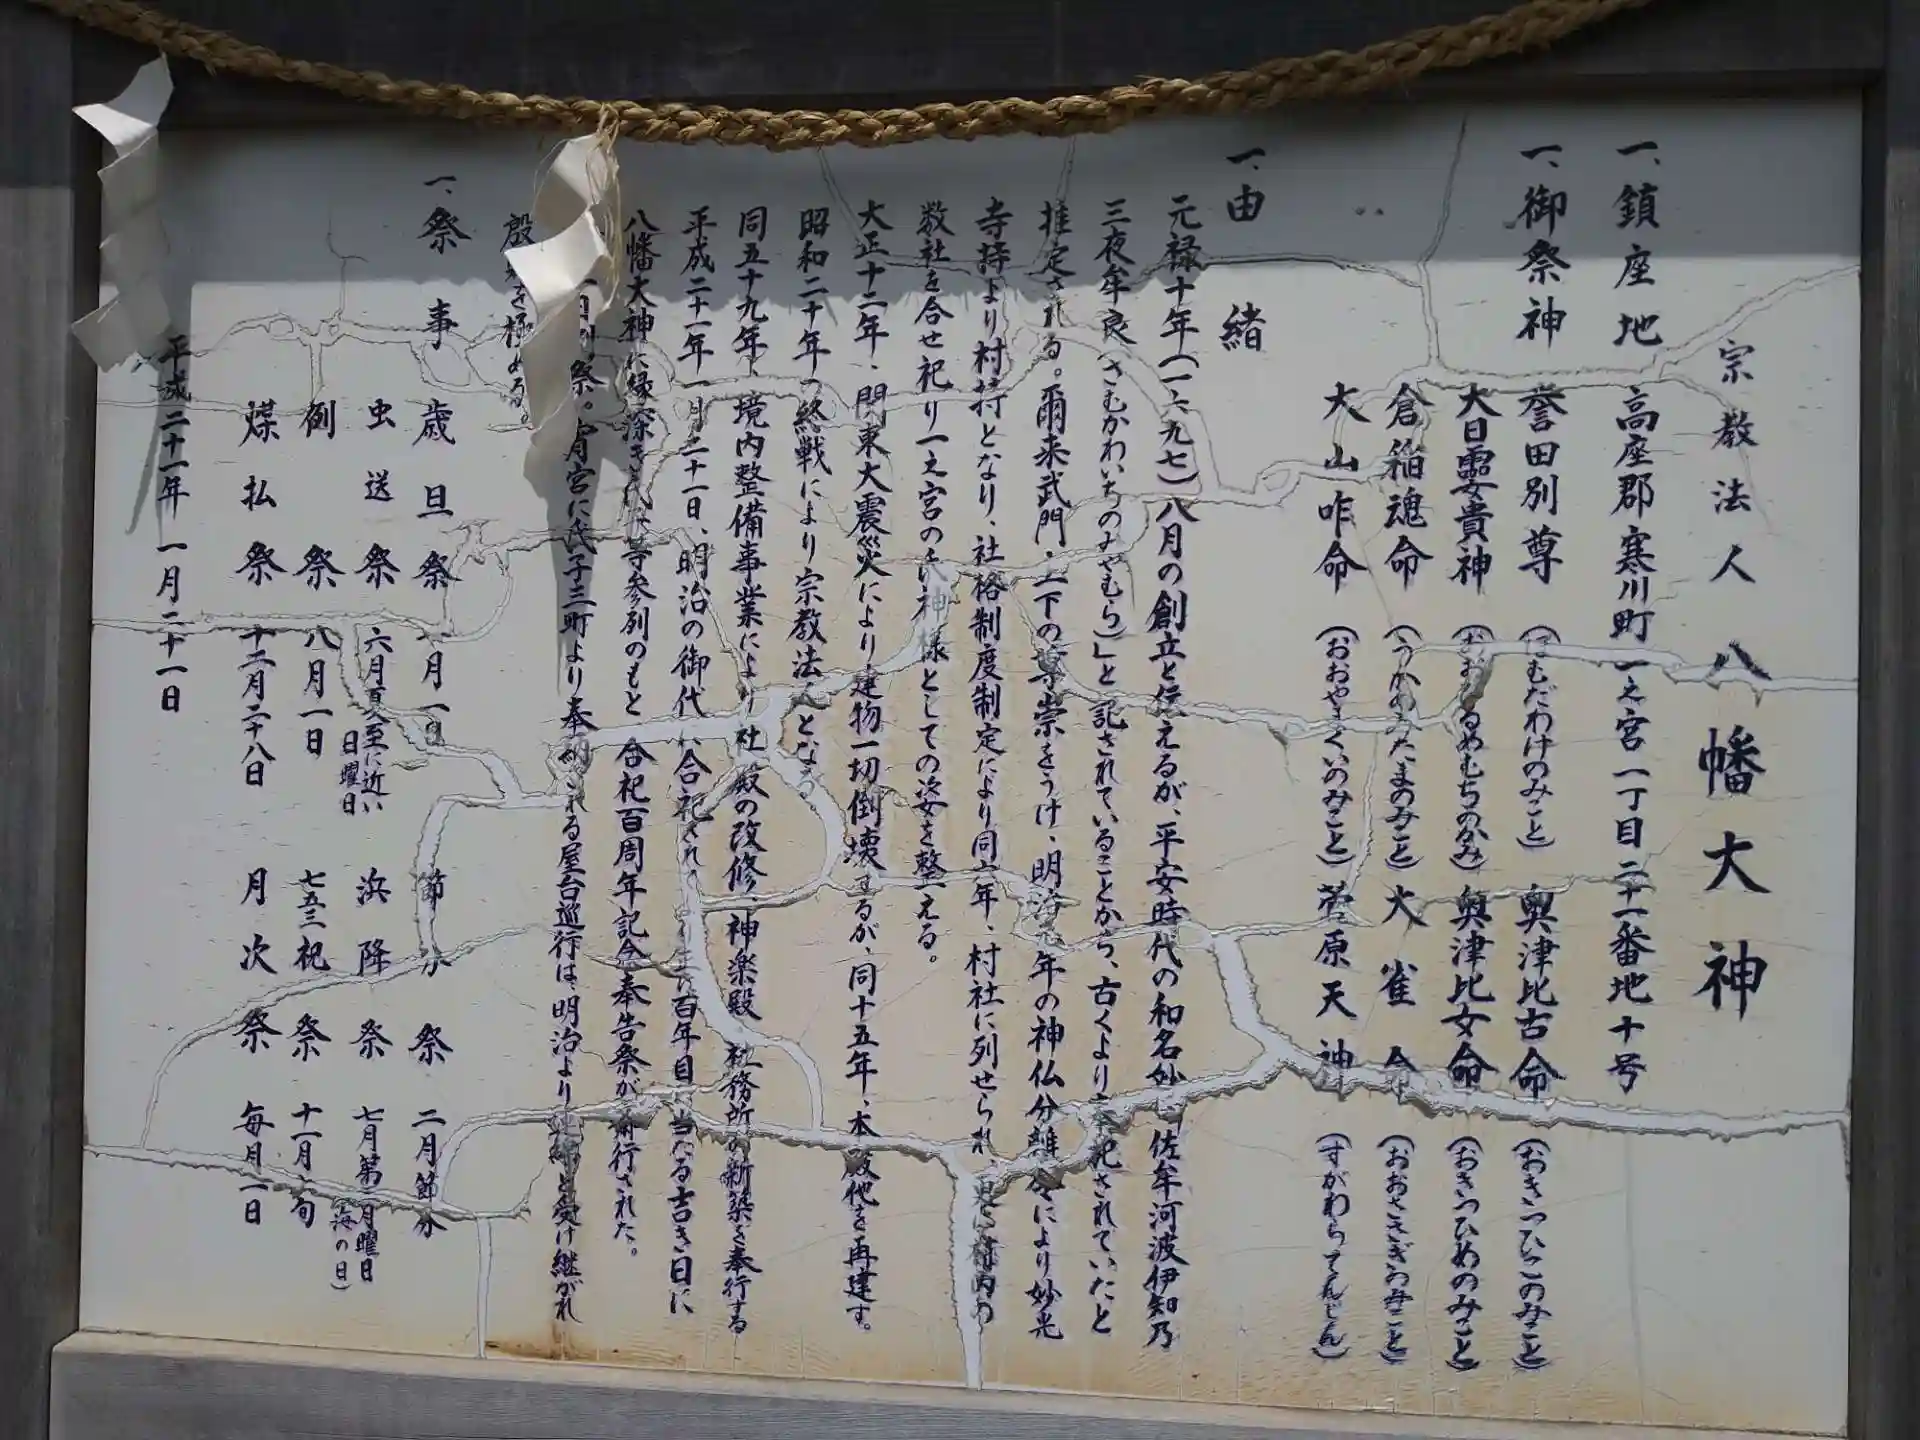 宗教法人 八幡大神
一、鎮座地 高座郡寒川町一之宮一丁目二十一番地十号
一、御祭神 誉田別尊 (ほむだわけのみこと) 奥津比古命 (おきつひこのみこと)
大日霊貴神 (おおひるめむちのかみ) 奥津比女命 (おきつひめのみこと)
倉稲魂命 (うかのみたまのみこと) 大雀命 (おおささぎのみこと)
大山咋命 (おおやまぐいのみこと) 菅原天神 (すがわらてんじん)
一、由緒
元禄十年(一六九七)八月の創立と伝えるが、平安時代の和名妙に佐牟河波伊知乃
三夜牟良(さむかわいちのみやむら)」と記されていることから、古くより奉祀されていたと
推定される。爾来武門、上下の尊崇をうけ、明治 年の神仏分離令により妙光
寺持より村持となり、社格制度制定により同六年、村社に列せられ、更に構内の
数社を合せ祀り一之宮の氏神様としての姿を整える。
大正十二年、関東大震災により建物一切倒壊するが、同十五年、本殿他を再建す。
昭和二十年の終戦により宗教法人となる
同五十九年、境内整備事業により社殿の改修、神楽殿 社務所の新築を奉行する
平成二十一年一月二十一日、明治の御代に合祀され より百年目に当たる吉き日に
八幡大神に縁深き 等参列のもと 合祀百周年記念奉告祭が斎行された。
一日例祭。宮に氏子三町より奉納される屋台巡行は、明治より連綿と受け継がれ
殷 を極める。
一、祭事 歳旦祭 一月一日 節分祭 二月節分
虫送祭 六月夏至に近い日曜日 浜降祭 七月第三月曜日(海の日)
例祭 八月一日 七五三祝祭 十一月 旬
煤払祭 十二月二十八日 月次祭 毎月一日
平成二十一年 一月二十一日